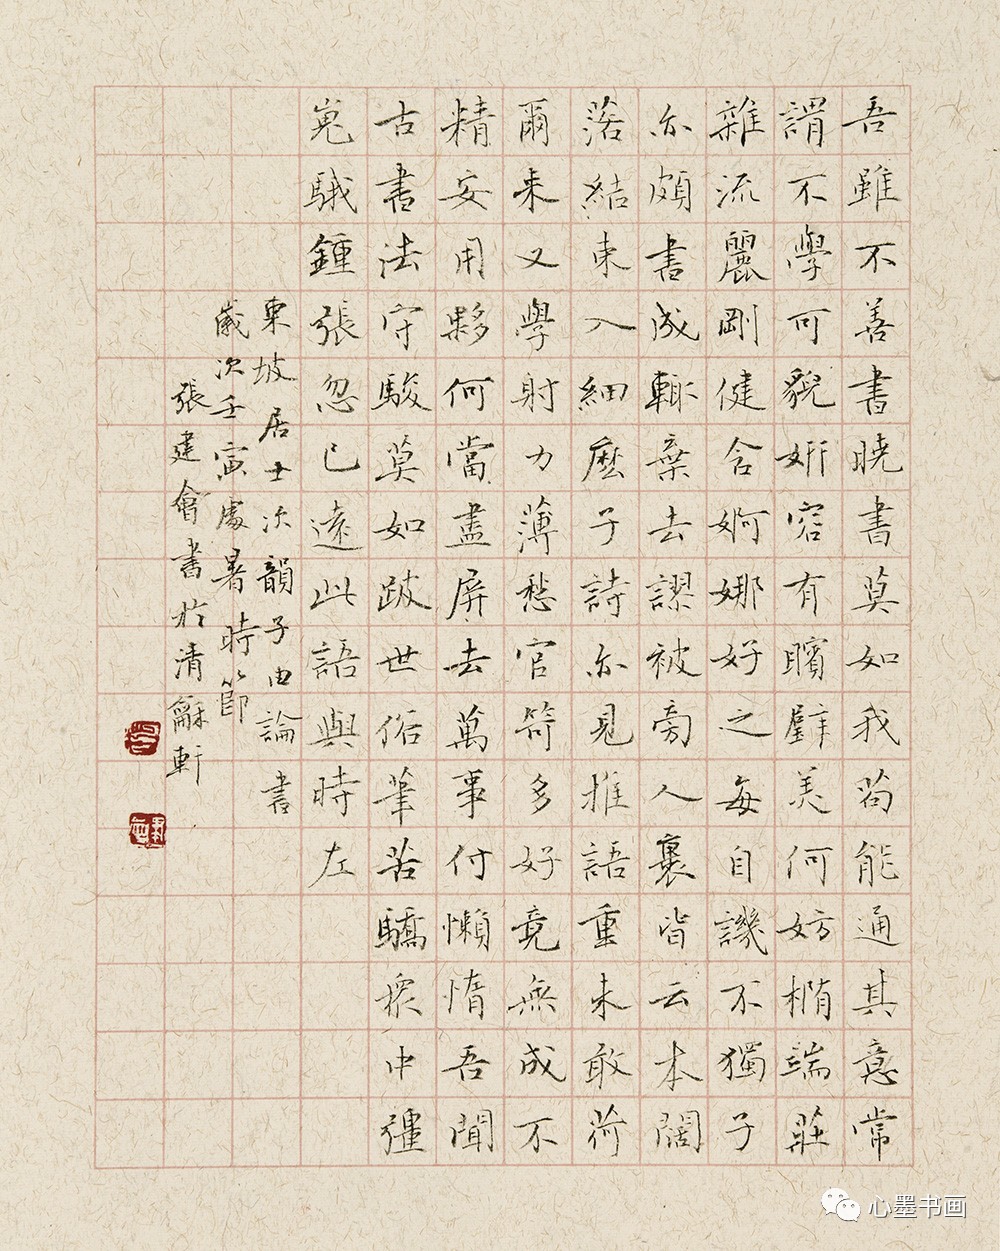 吾雖不善書曉書莫如我苟能通其意常
謂不學可貌妍容有矉璧美何妨橢端莊
雜流麗剛健含婀娜好之每自譏不獨子
亦頗書成輒棄去謬被旁人裹皆云本闊
落結束入細麼子詩亦見推語重未敢荷
爾來又學射力薄愁官笴多好竟無成不
精安用夥何當盡屏去萬事付懶惰吾聞
古書法守駿莫如跛世俗筆苦驕衆中強
嵬騀鍾張忽已遠此語與時左
東坡居士次韻子由論書
歲次壬寅處暑時節
張建會書於清龢軒
心墨书画